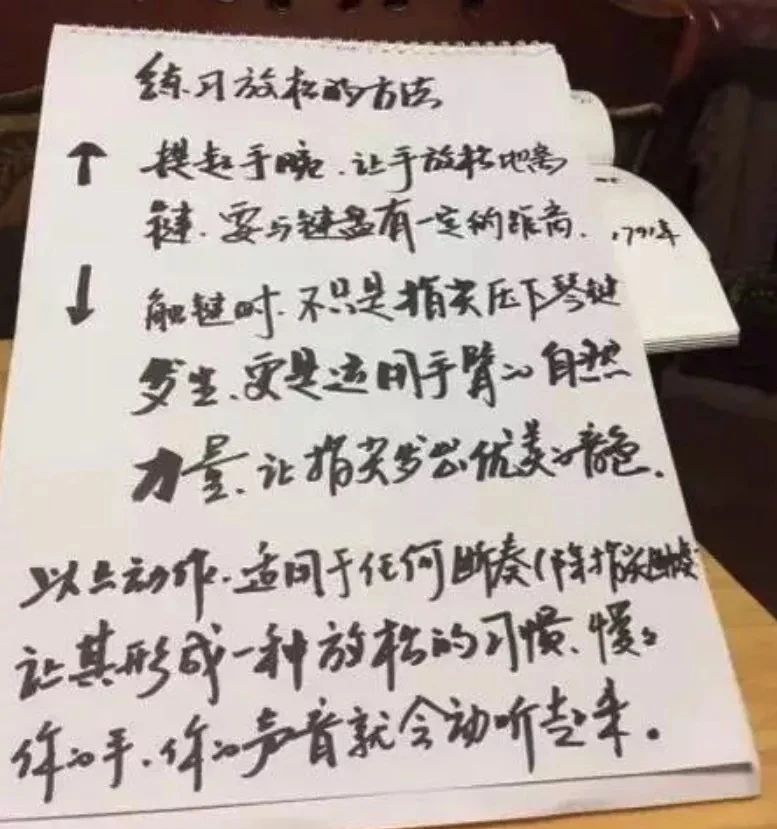 练习放松的方法
↑ 提起手腕、让手放松地离
键、要与键盘有一定的距离、
↓ 触键时、不只是指尖压下琴键
发生、更是运用手臂的自然
力量、让指尖发出优美的音色。
以上动作、适用于任何断奏(除指尖断奏
让其形成一种放松的习惯、慢々
你的手、你的声音就会动听起来。
1791年